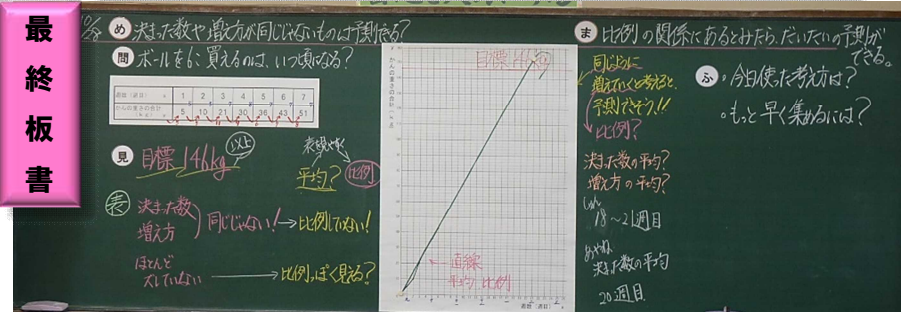 最終板書
め 決まった数や増え方が同じじゃないものは予測できる?
問 ボールを6こ買えるのは、いつ頃になる?
週数(週目) 1 2 3 4 5 6 7
かんの重さの合計(kg) 5 10 21 30 36 43 51
見 目標146kg 以上
平均? 比例
表 決まった数
増え方
同じじゃない! → 比例していない!
ほとんど
→ 比例っぽく見える?
目標146kg
かんの重さの合計
直線
平均 比例
週数(週目)
ま 比例の関係にあるとみたら、だいたいの予測ができる。
同じように
増えていくと考えると、
予測できそう!!
比例?
決まった数の平均?
増え方の平均?
18〜21週目
決まった数の平均
20週目
ふ ・今日使った考え方は?
・もっと早く集めるには?